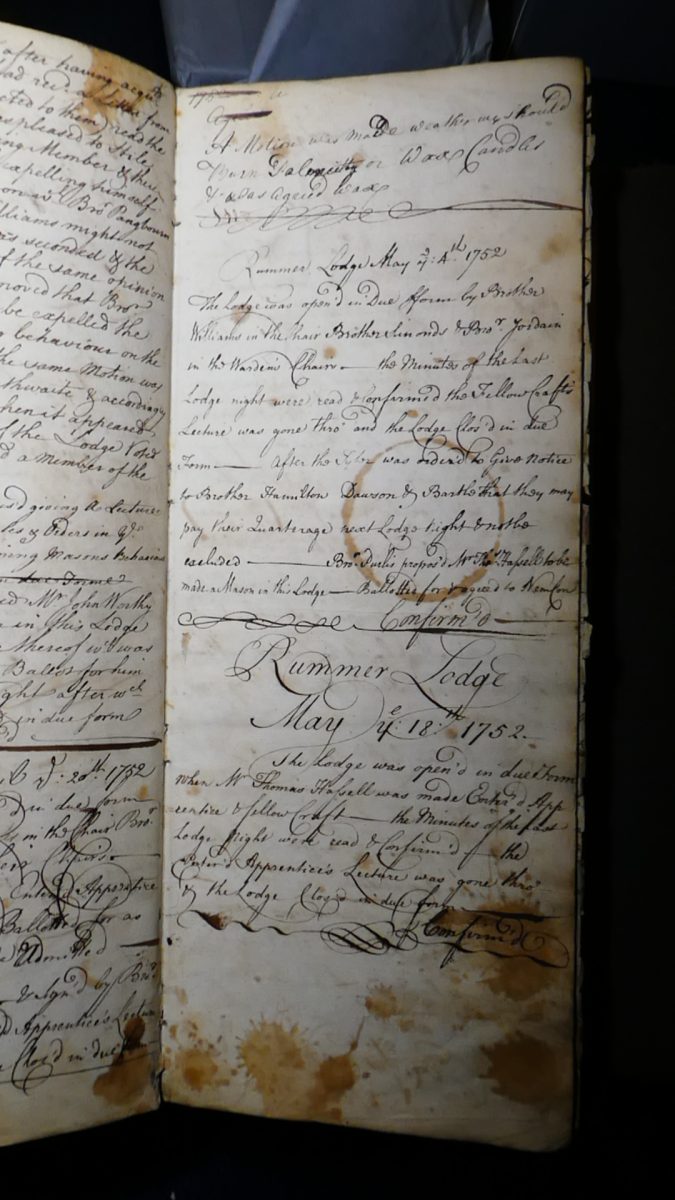 after having
them read the
pleased to
ing Member & thus
expelling himself
Bro.r Pangbourn
Williams might not
seconded & the
of the same opinion
moved that Bror
be expelled the
behaviour on the
the same Motion was
& accordingly
when it appeared
of the Lodge Voted
a member of the
giving a Lecture
& Orders in
Masons Behaviour
in due Forme
Mr. John Worthy
in this Lodge
thereof wch was
Ballot for him
night after
in due form
20th 1752
in due form
in the Chair Bro.
Chairs
Enter'd Apprentice
Ballotted for as
Admitted
& Sign'd by Bro.r
Apprentice's Lecture
Clos'd in due form
A Motion was made weather we should
Burn or Wax Candles
& was Agreed Wax
Rummer Lodge May ye: 4th 1752
The Lodge was open'd in Due fform by Brother
Williams in the Chair Brother Simonds & Bror. Jordain
in the Warden's Chairs — the Minutes of the Last
Lodge night were read & Confirm'd the Fellow Craft's
Lecture was gone thro' and the Lodge Clos'd in due
Form — After the Tyler was order'd to Give Notice
to Brother Hamilton Dawson & Bartlet that they may
pay their Quarterage next Lodge Night & not be
excluded — Bror propos'd Mr Thos Hassell to be
made a Mason in this Lodge — Ballotted for & agreed to
Confirm'd
Rummer Lodge
May ye: 18:th 1752
The Lodge was open'd in due Form
When Mr Thomas Hassell was made Enter'd App
rentice & fellow Craft — the Minutes of the last
Lodge Night were read & Confirm'd — the
Enter'd Apprentice's Lecture was gone thro'
& the Lodge Clos'd in due form
Confirm'd